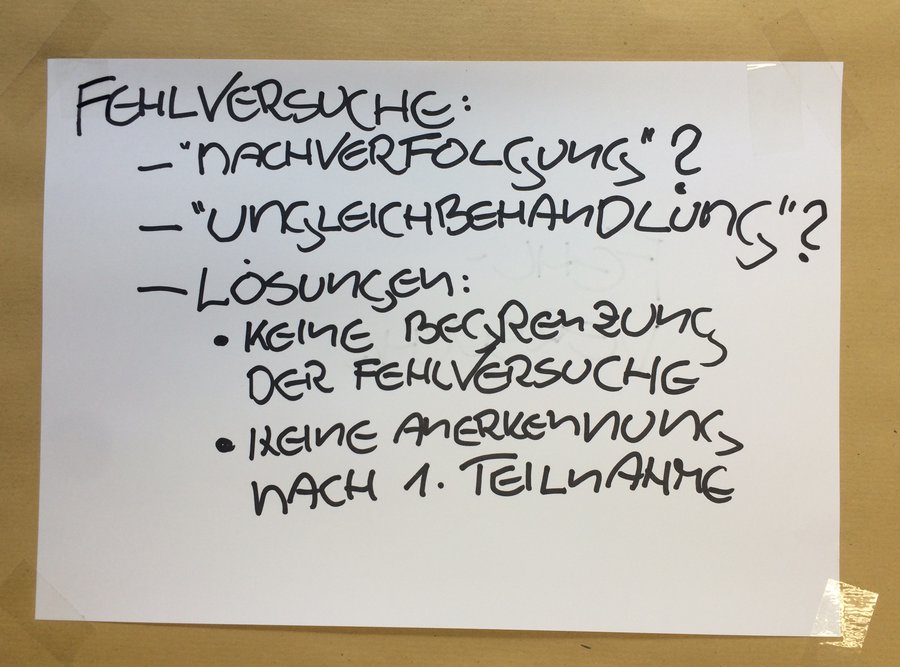 FEHLVERSUCHE:
– "NACHVERFOLGUNG"?
– "UNGLEICHBEHANDLUNG"?
– LÖSUNGEN:
• KEINE BEGRENZUNG
DER FEHLVERSUCHE
• KEINE ANERKENNUNG
NACH 1. TEILNAHME